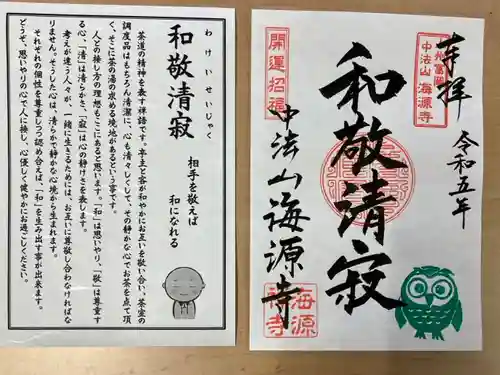 奉拝
令和五年
中法山 海源寺
和敬清寂
開運招福
中法山海源寺
海源禅寺
わけいせいじゃく
和敬清寂
相手を敬えば
和になれる
茶道の精神を表す禅語です。亭主と客が和やかにお互いを敬い合い、茶室の
調度品はもちろん清潔に、心も清々しくして、その静かな心でお茶を点て頂
く、そこに茶の湯の求める境地があるという事です。
人との接し方の理想もここにあると思います。「和」は思いやり、「敬」は尊重す
る心、「清」は清らかさ、「寂」は心の静けさを表します。
考えが違う人々が、一緒に生きるためには、お互いに尊敬し合わなければな
りません。そうした心は、清らかで静かな心境から生まれます。
それぞれの個性を尊重しつつ認め合えば、「和」を生み出す事が出来ます。
どうぞ、思いやりの心で人に接し、心優しく健やかにお過ごしください。